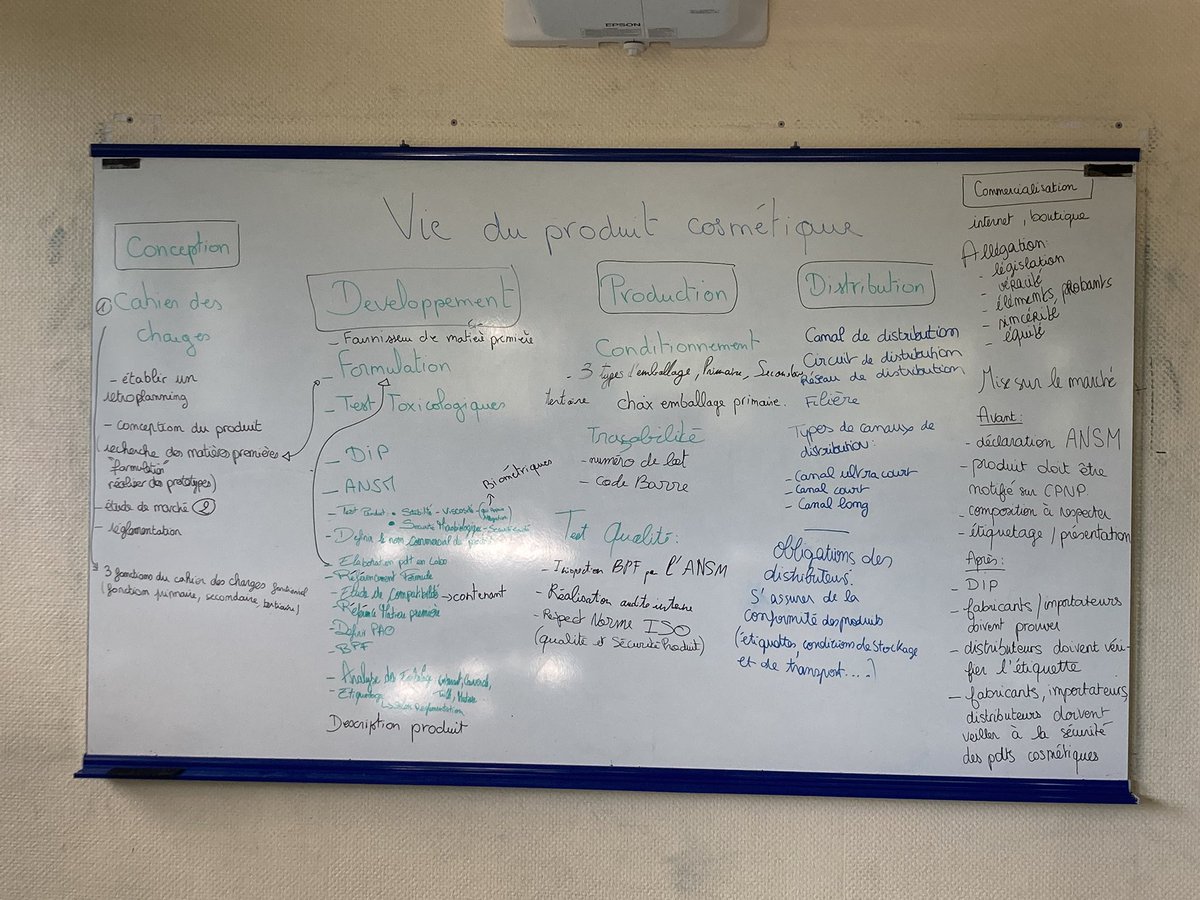 EPSON
Vie du produit cosmétique
Conception
① Cahier des
charges
- établir un
retroplanning
- conception du produit
(recherche des matières premières
"formulation"
réaliser des prototypes)
- étude de marché ②
- réglementation
3 fonctions du cahier des charges fonctionnel
(fonction primaire, secondaire, tertiaire)
Developpement
- Fournisseur de matière première
- Formulation
- Test Toxicologiques
- DiP
- ANSM
Biométriques
- Test Produit: • Stabilité - Viscosité
• Sécurité Microbiologique - Sécurité
- Définir le nom Commercial du produit
- Elaboration pdt en Labo
- Référencement Formule
- Etude de Compatibilités → contenant
- Référence Matière première
- Définir PAO
- BPF
- Analyse des
- Etiquetage Taille, Matière
Selon Réglementation
Description produit
Production
Conditionnement
- 3 types d'emballage, Primaire, Secondaire
tertiaire choix emballage primaire.
Traçabilité
- numéro de lot
- Code Barre
Test Qualité:
- Inspection BPF par l'ANSM
- Réalisation audits interne
- Respect Norme ISO
(qualité et Sécurité Produit)
Distribution
Canal de distribution
Circuit de distribution
Réseau de distribution
Filière
Types de canaux de
distribution:
- Canal ultra court
- Canal court
- Canal long
Obligations des
distributeurs:
S'assurer de la
conformité des produits
(étiquettes, conditions de stockage
et de transport....)
Commercialisation
internet, boutique
Allégation:
- législation
- véracité
- éléments probants
- sincérité
- équité
Mise sur le marché
Avant:
- déclaration ANSM
- produit doit être
notifié sur CPNP.
- composition à respecter
- étiquetage / présentation
Après:
- DIP
- fabricants / importateurs
doivent prouver
- distributeurs doivent véri-
fier l'étiquette
- fabricants, importateurs,
distributeurs doivent
veiller à la sécurité
des pdts cosmétiques